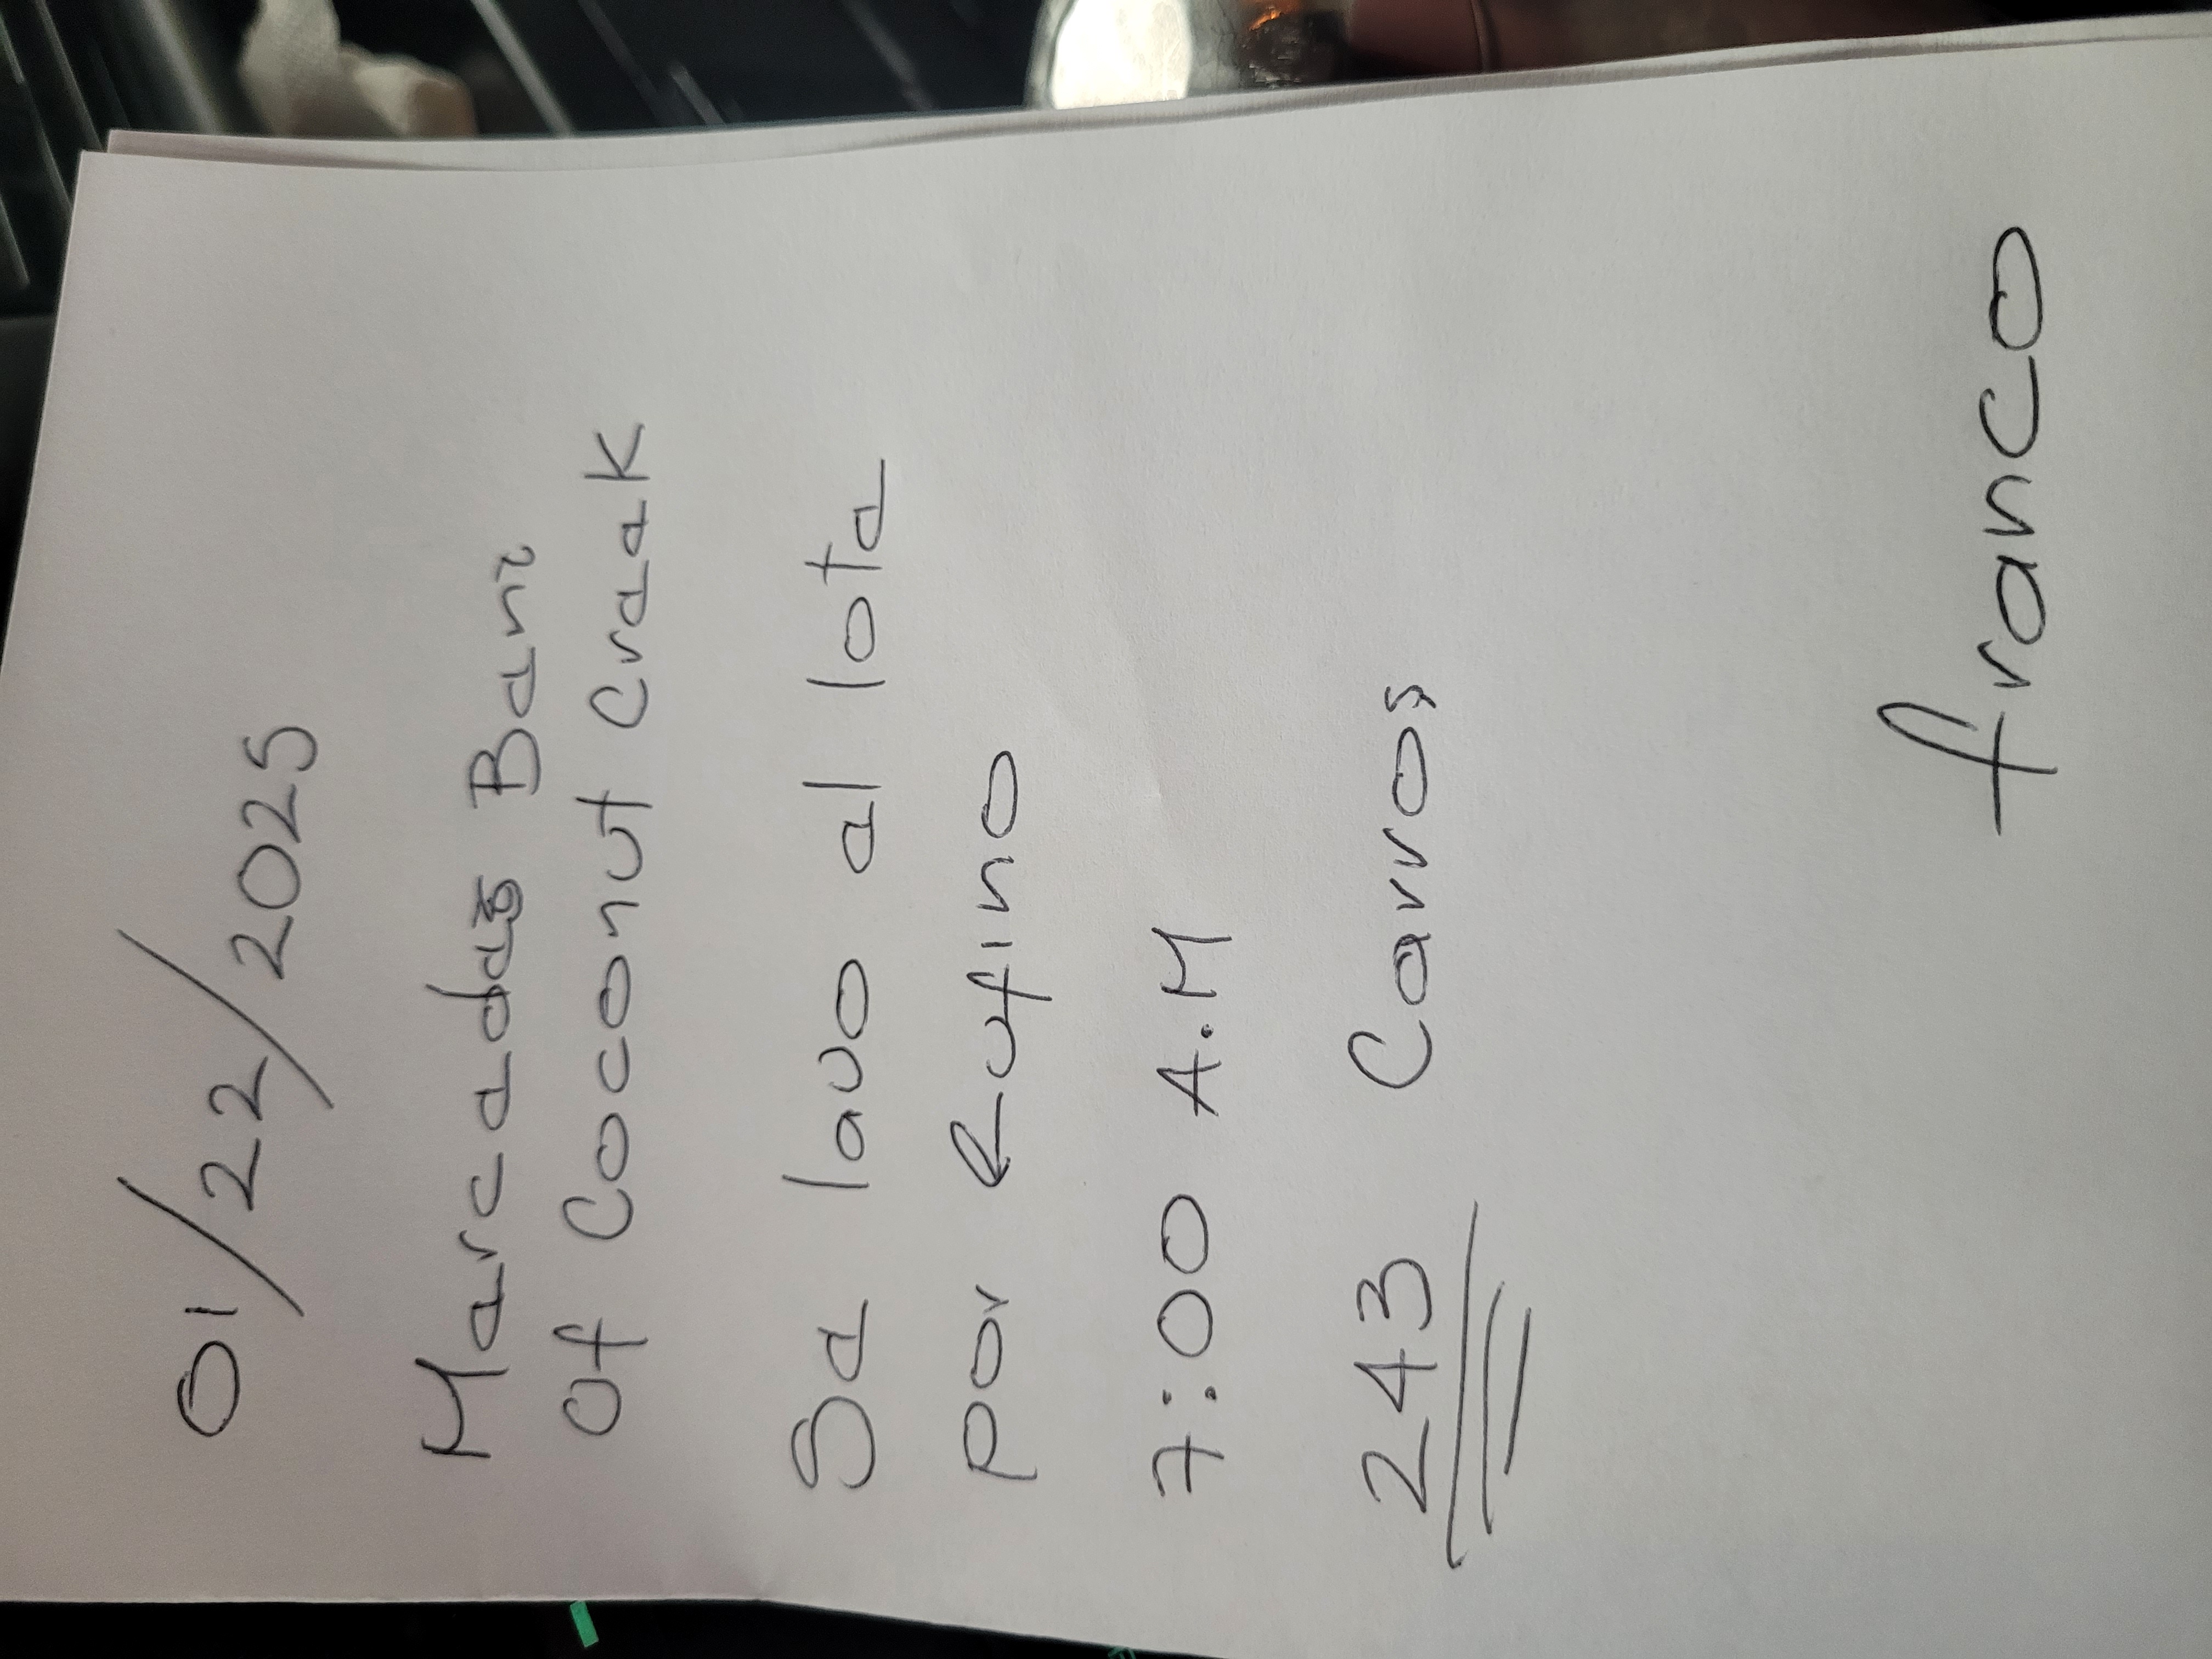 01/22/2025
Mercedes Benz
of Coconut Creek
Se lavo el lote
por Rufino
7:00 A.M
243 Carros
franco